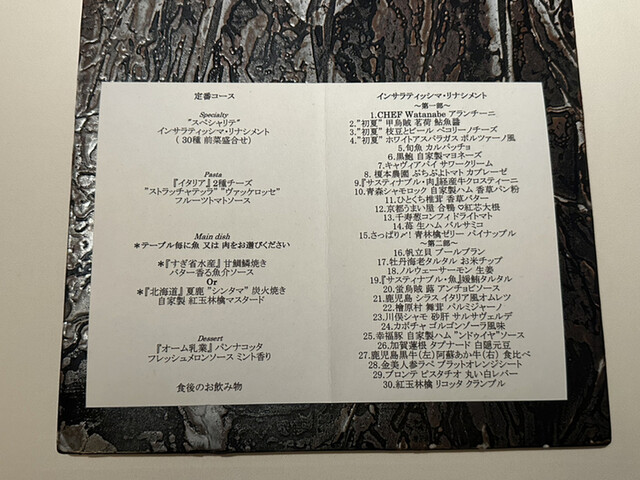 定番コース
Specialty
"スペシャリテ"
インサラティッシマ・リナシメント
( 30種 前菜盛合せ)
Pasta
『イタリア』2種チーズ
"ストラッチャテッラ" "ヴァッケロッセ"
フルーツトマトソース
Main dish
＊テーブル毎に魚 又は 肉をお選びください
＊『すぎ省水産』甘鯛鱗焼き
バター香る魚介ソース
Or
＊『北海道』夏鹿 "シンタマ" 炭火焼き
自家製 紅玉林檎マスタード
Dessert
『オーム乳業』パンナコッタ
フレッシュメロンソース ミント香り
食後のお飲み物
インサラティッシマ・リナシメント
～第一部～
1.CHEF Watanabe アランチーニ
2."初夏" 甲烏賊 茗荷 鮎魚醤
3."初夏" 枝豆とビール ペコリーノチーズ
4."初夏" ホワイトアスパラガス ボルツァーノ風
5.旬魚 カルパッチョ
6.黒鮑 自家製マヨネーズ
7.キャヴィアパイ サワークリーム
8.榎本農園 ぷちぷよトマト カプレーゼ
9.『サスティナブル・肉』経産牛クロスティーニ
10.青森シャモロック 自家製ハム 香草パン粉
11.ひとくち椎茸 香草バター
12.京都うまい屋 合鴨 ♡紅芯大根
13.千寿葱コンフィドライトマト
14.苺 生ハム バルサミコ
15.さっぱり〆! 青林檎ゼリー パイナップル
～第二部～
16.帆立貝 ブールブラン
17.牡丹海老タルタル お米チップ
18.ノルウェーサーモン 生姜
19.『サスティナブル・魚』媛鮪タルタル
20.蛍烏賊 蕗 アンチョビソース
21.鹿児島 シラス イタリア風オムレツ
22.檜原村 舞茸 パルミジャーノ
23.川俣シャモ 砂肝 サルサヴェルデ
24.カボチャ ゴルゴンゾーラ風味
25.幸福豚 自家製ハム "ンドゥイヤ"ソース
26.加賀蓮根 タプナード 白隠元豆
27.鹿児島黒牛(左) 阿蘇あか牛(右) 食比べ
28.金美人参ラペ ブラットオレンジシート
29.ブロンテ ピスタチオ 丸い白レバー
30.紅玉林檎 リコッタ クランブル